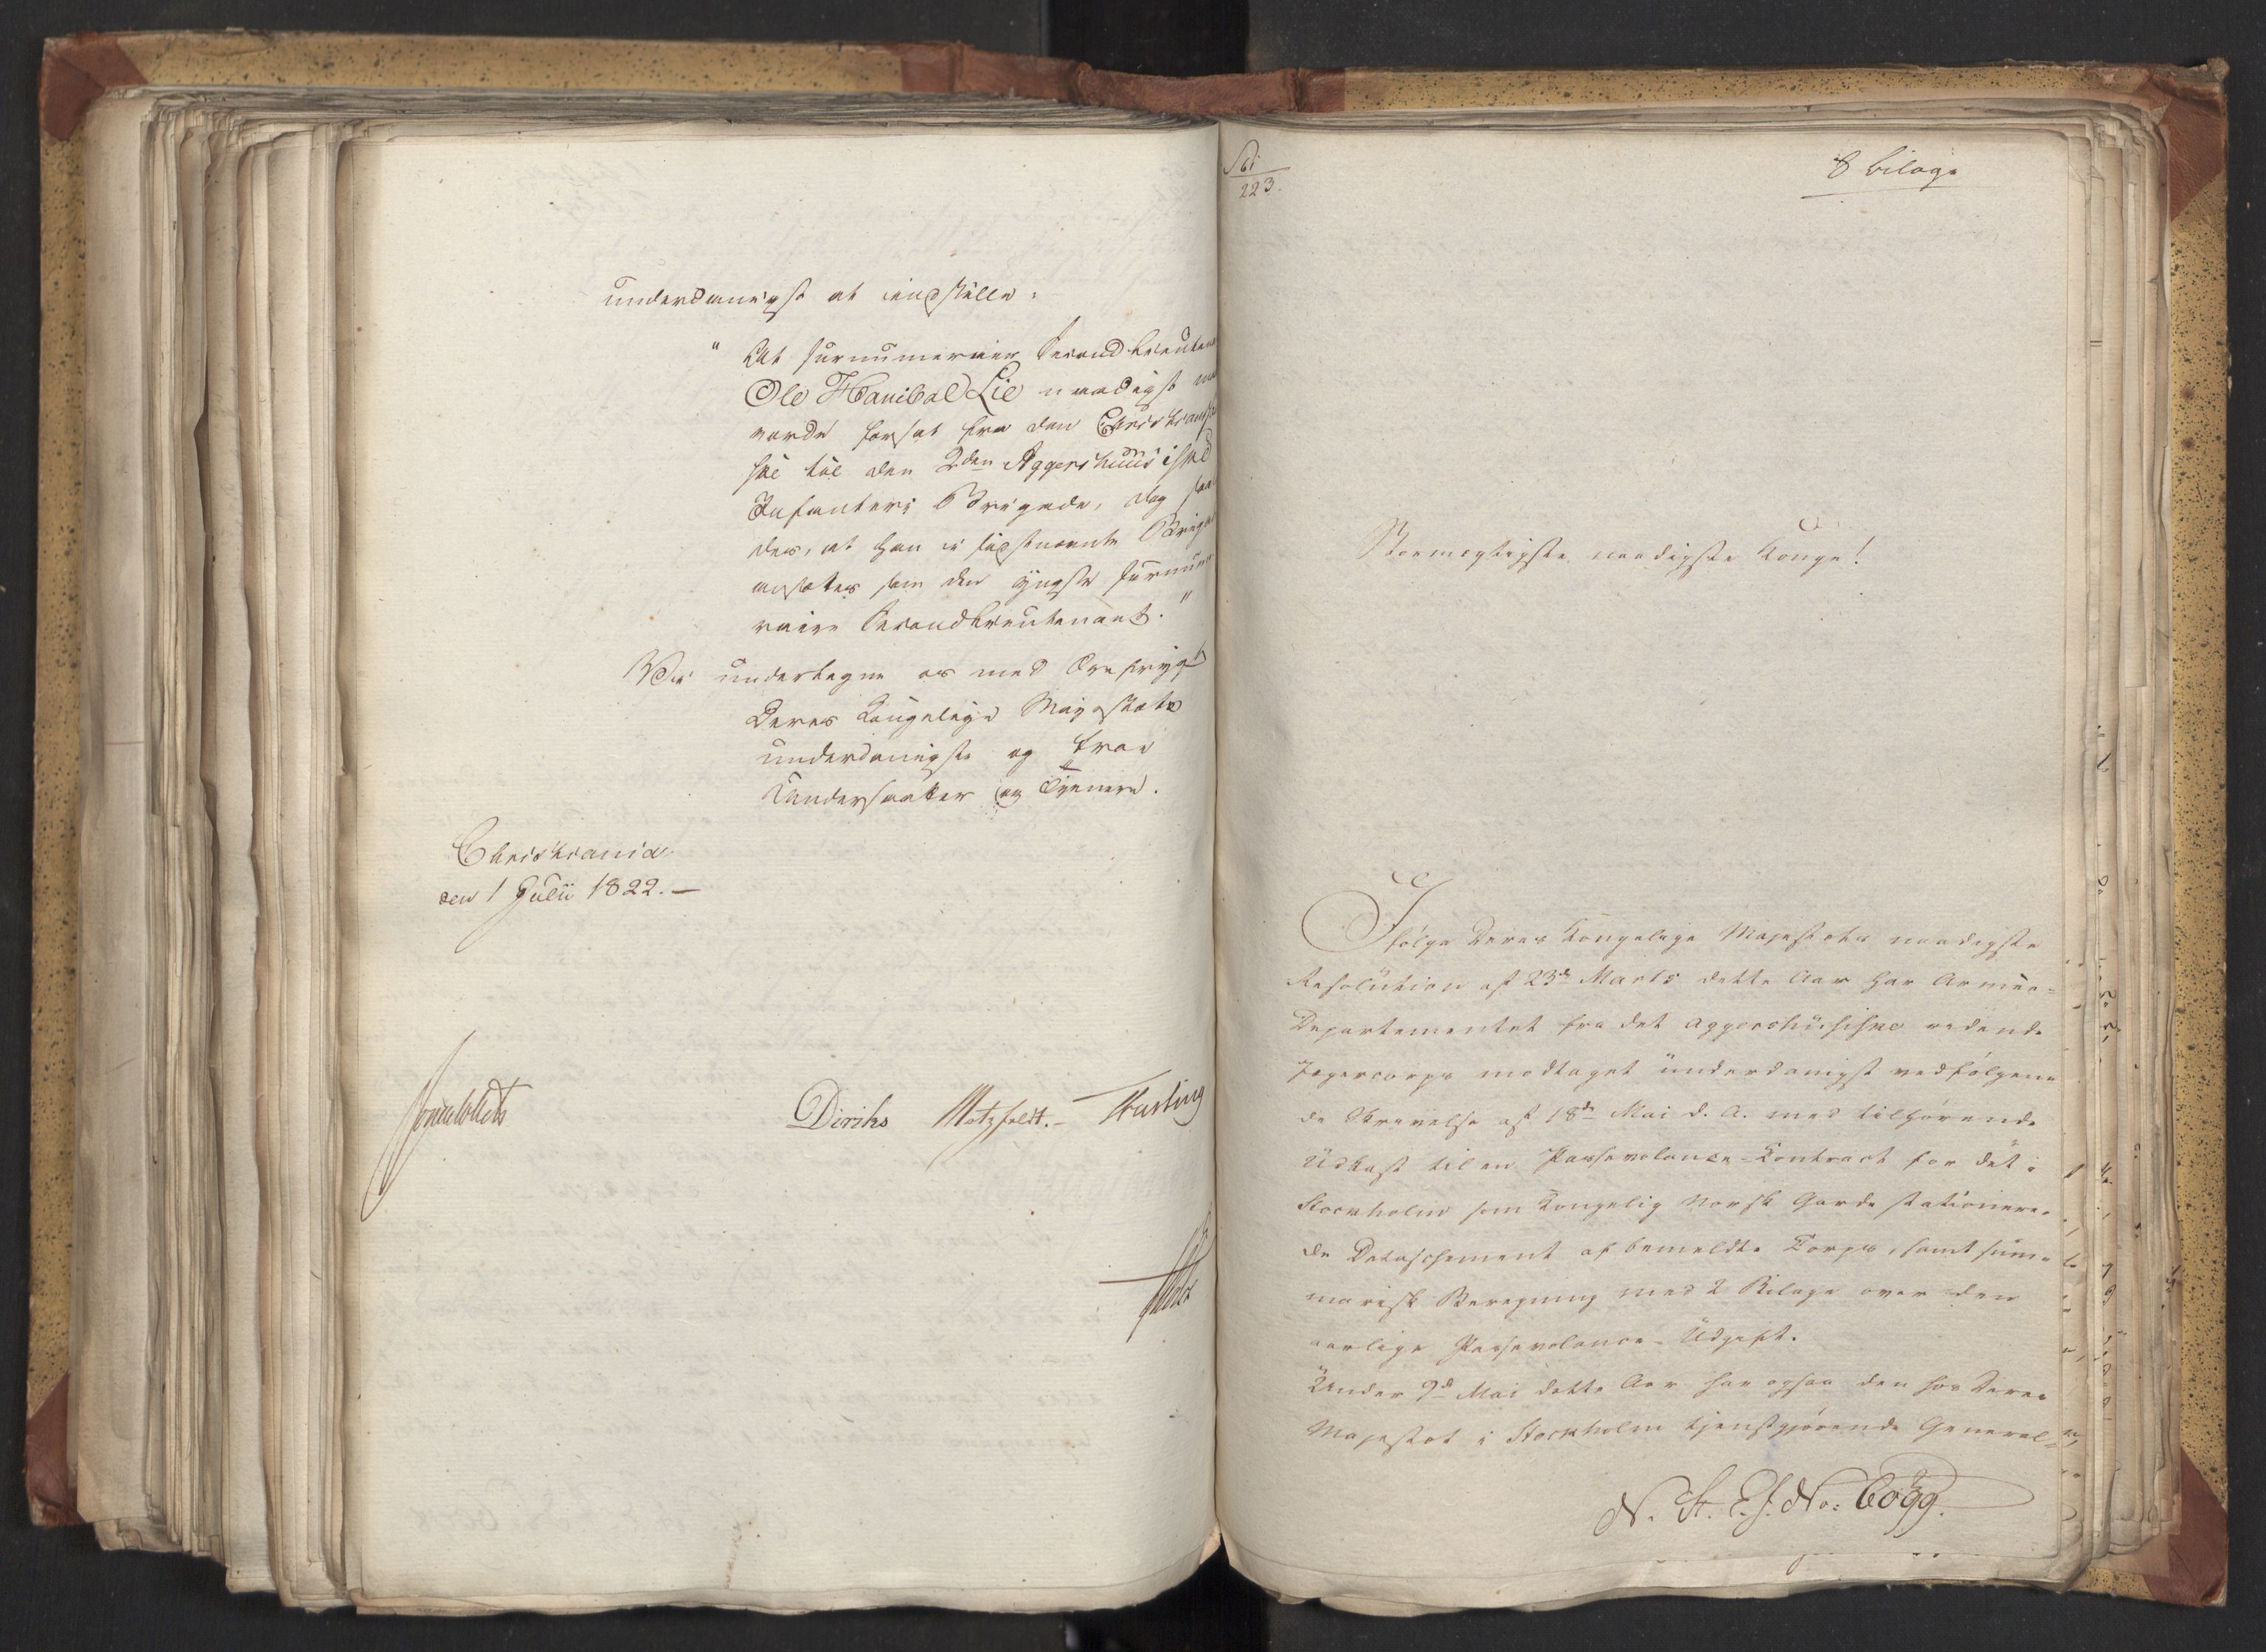 underdanigst at indstille:
" At surnumerair Secondlieutenant
Ole Hanibal Lie naadigst maa
vorde forsat fra den Christiansand-
ske til den 2den Aggershuusiske
Infanteri Brigade, dog saa-
des, at han i sidstnævnte Brigade
ansættes som den yngste surnume-
raire Secondlieutenant."
Vi undertegne os med Ærefrygt
Deres Kongelige Majestæts
underdanigste og troe
Undersaatter og Tjenere.
Christiania
den 1 Julii 1822. —
Sommerhielm Diriks Motzfeldt. Fasting
223.
8 bilage
Stormægtigste naadigste Konge!
Ifølge Deres Kongelige Majestæts naadigste
Resolution af 23de Marts dette Aar har Armee-
Departementet fra det aggershusiske ridende
Jægercorps modtaget underdanigst vedfølgen-
de Skrivelse af 18de Mai d. A. med tilhørende
Udkast til en Passevolance-Contract for det i
Stockholm som Kongelig Norsk Garde statione-
de Detaschement af bemeldte Corps, samt sum-
marisk Beregning med 2 Bilage over den
aarlige Passevolance-Udgift.
Under 9de Mai dette Aar har ogsaa den hos Deres
Majestæt i Stockholm tjenstgjørende General-
N. St. E. J. No: 6099.